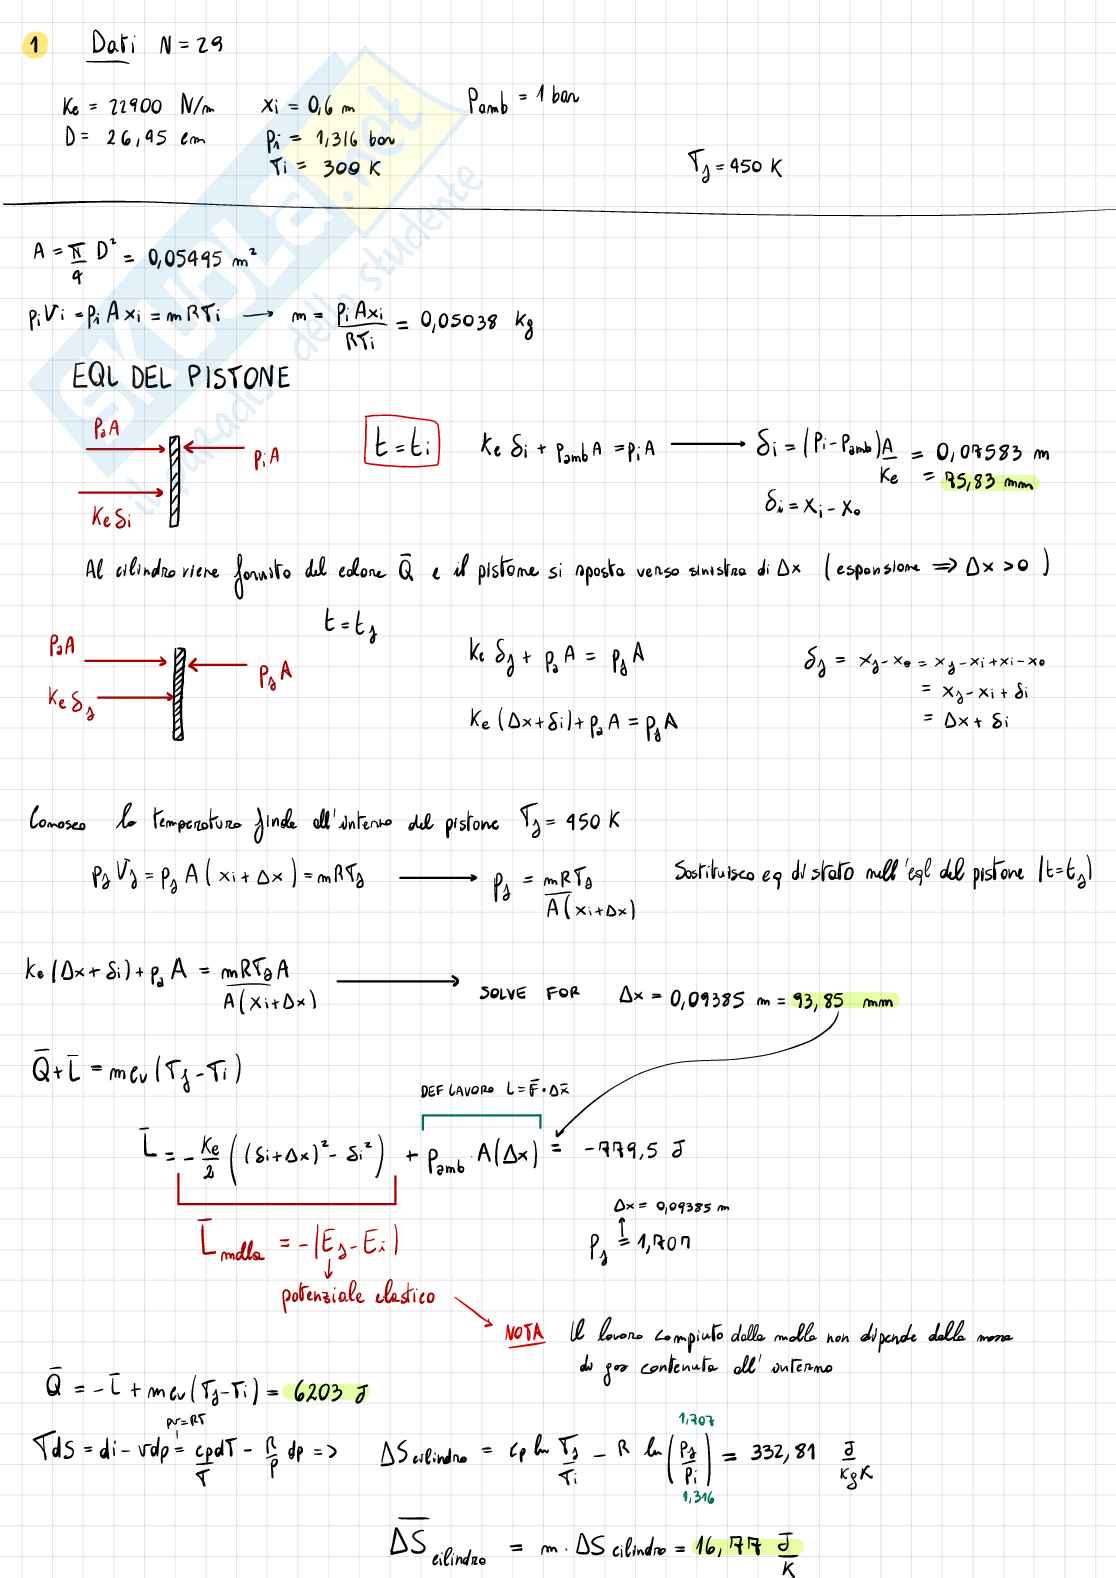 1 Dati N = 29
Ke = 22900 N/m xi = 0,6 m Pamb = 1 bar
D = 26,45 cm pi = 1,316 bar
Ti = 300 K Tf = 450 K
A = π/4 D² = 0,05495 m²
piVi = pi A xi = mRTi → m = pi A xi / RTi = 0,05038 kg
EQL DEL PISTONE
PaA piA Ke δi
t = ti
Ke δi + pamb A = pi A → δi = (Pi - Pamb) A / Ke = 0,07583 m
= 75,83 mm
δi = xi - xo
Al cilindro viene fornito del calore Q̄ e il pistone si sposta verso sinistra di Δx (espansione ⇒ Δx > 0)
t = tf
PaA PfA Ke δf
Ke δf + pa A = pf A
Ke (Δx + δi) + pa A = pf A
δf = xf - xo = xf - xi + xi - xo
= xf - xi + δi
= Δx + δi
Conosco la temperatura finale all'interno del pistone Tf = 450 K
pf Vf = pf A (xi + Δx) = mRTf → pf = mRTf / A(xi + Δx) Sostituisco eq di stato nell'eql del pistone (t = tf)
Ke (Δx + δi) + pa A = mRTf A / A(xi + Δx) → SOLVE FOR Δx = 0,09385 m = 93,85 mm
Q̄ + L̄ = m cv (Tf - Ti)
DEF LAVORO L = F̄ · Δx̄
L̄ = - Ke/2 ((δi + Δx)² - δi²) + Pamb · A(Δx) = -779,5 J
L̄molla = -(Ef - Ei)
Δx = 0,09385 m
Pf = 1,707
potenziale elastico
NOTA Il lavoro compiuto dalla molla non dipende dalla massa
di gas contenuta all'interno
Q̄ = - L̄ + m cv (Tf - Ti) = 6203 J
pv = RT
TdS = di - vdp = cp dT / T - R/p dp => ΔS cilindro = cp ln Tf/Ti - R ln (Pf/Pi) = 332,81 J/kgK
1,707
1,316
ΔS̄ cilindro = m · ΔS cilindro = 16,77 J/K
SKUOLA.net
il paradiso dello studente